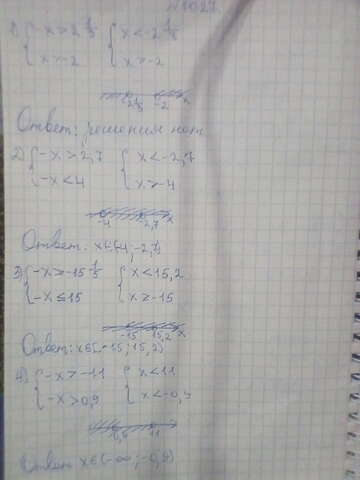 №1027
1) { -x > 2 1/5 { x < -2 1/5
{ x > -2 { x > -2
-2 1/5 -2 x
Ответ: решения нет
2) { -x > 2,7 { x < -2,7
{ -x < 4 { x > -4
-4 -2,7 x
Ответ: x∈(-4; -2,7)
3) { -x > -15 1/5 { x < 15,2
{ -x ≤ 15 { x ≥ -15
-15 15,2 x
Ответ: x∈[-15; 15,2)
4) { -x > -11 { x < 11
{ -x > 0,9 { x < -0,9
-0,9 11
Ответ: x∈(-∞; -0,9)